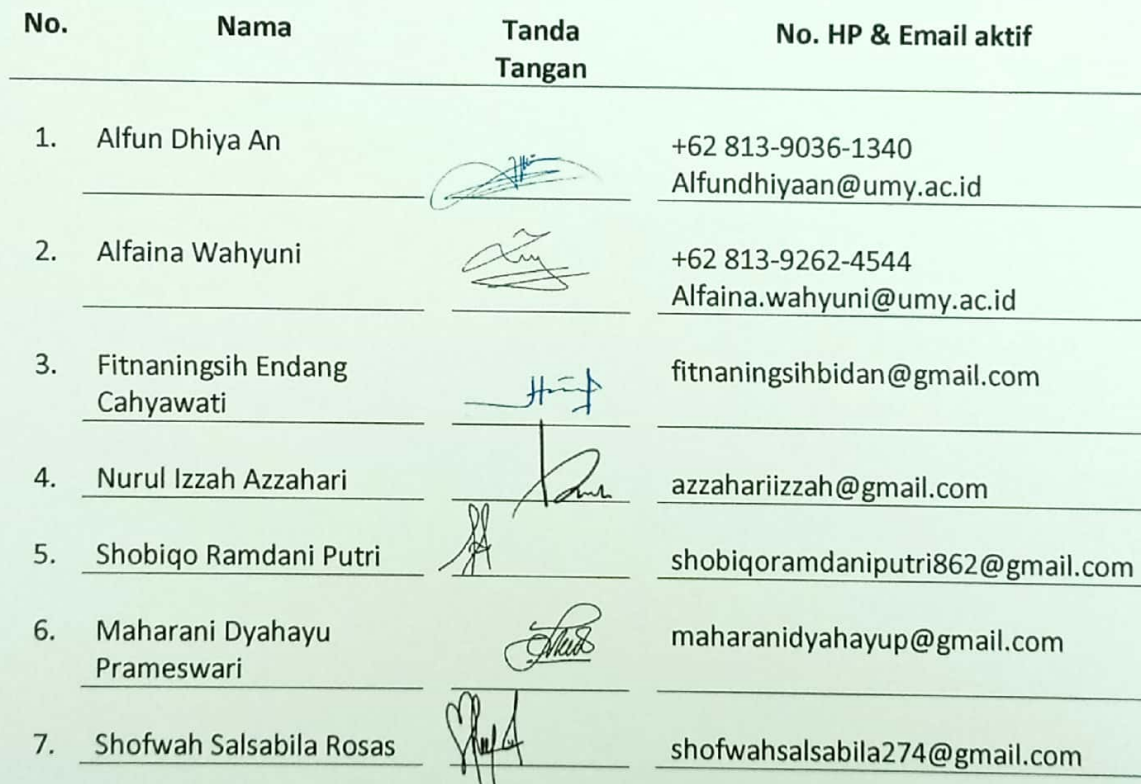 No. Nama Tanda Tangan No. HP & Email aktif
1. Alfun Dhiya An +62 813-9036-1340
Alfundhiyaan@umy.ac.id
2. Alfaina Wahyuni +62 813-9262-4544
Alfaina.wahyuni@umy.ac.id
3. Fitnaningsih Endang fitnaningsihbidan@gmail.com
Cahyawati
4. Nurul Izzah Azzahari azzahariizzah@gmail.com
5. Shobiqo Ramdani Putri shobiqoramdaniputri862@gmail.com
6. Maharani Dyahayu maharanidyahayup@gmail.com
Prameswari
7. Shofwah Salsabila Rosas shofwahsalsabila274@gmail.com